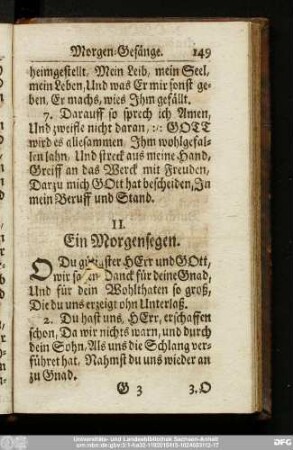 Morgen-Gesänge. 149
heimgestellt, Mein Leib, mein Seel,
mein Leben, Und was Er mir sonst ge-
ben, Er machs, wies Jhm gefällt.
7. Darauff so sprech ich Amen,
Und zweifle nicht daran, :/: GOTT
wird es allesammen, Jhm wohlgefal-
len lahn, Und streck aus meine Hand,
Greiff an das Werck mit Freuden,
Darzu mich GOtt hat bescheiden, Jn
mein Beruff und Stand.
II.
Ein Morgensegen.
O Du ster HErr und GOtt,
wir Danck für deine Gnad,
Und für dein Wohlthaten so groß,
Die du uns erzeigt ohn Unterlaß.
2. Du hast uns, HErr, erschaffen
schon, Da wir nichts warn, und durch
dein Sohn, Als uns die Schlang ver-
führet hat, Nahmst du uns wieder an
zu Gnad.
G 3 3. O
Universitäts- und Landesbibliothek Sachsen-Anhalt